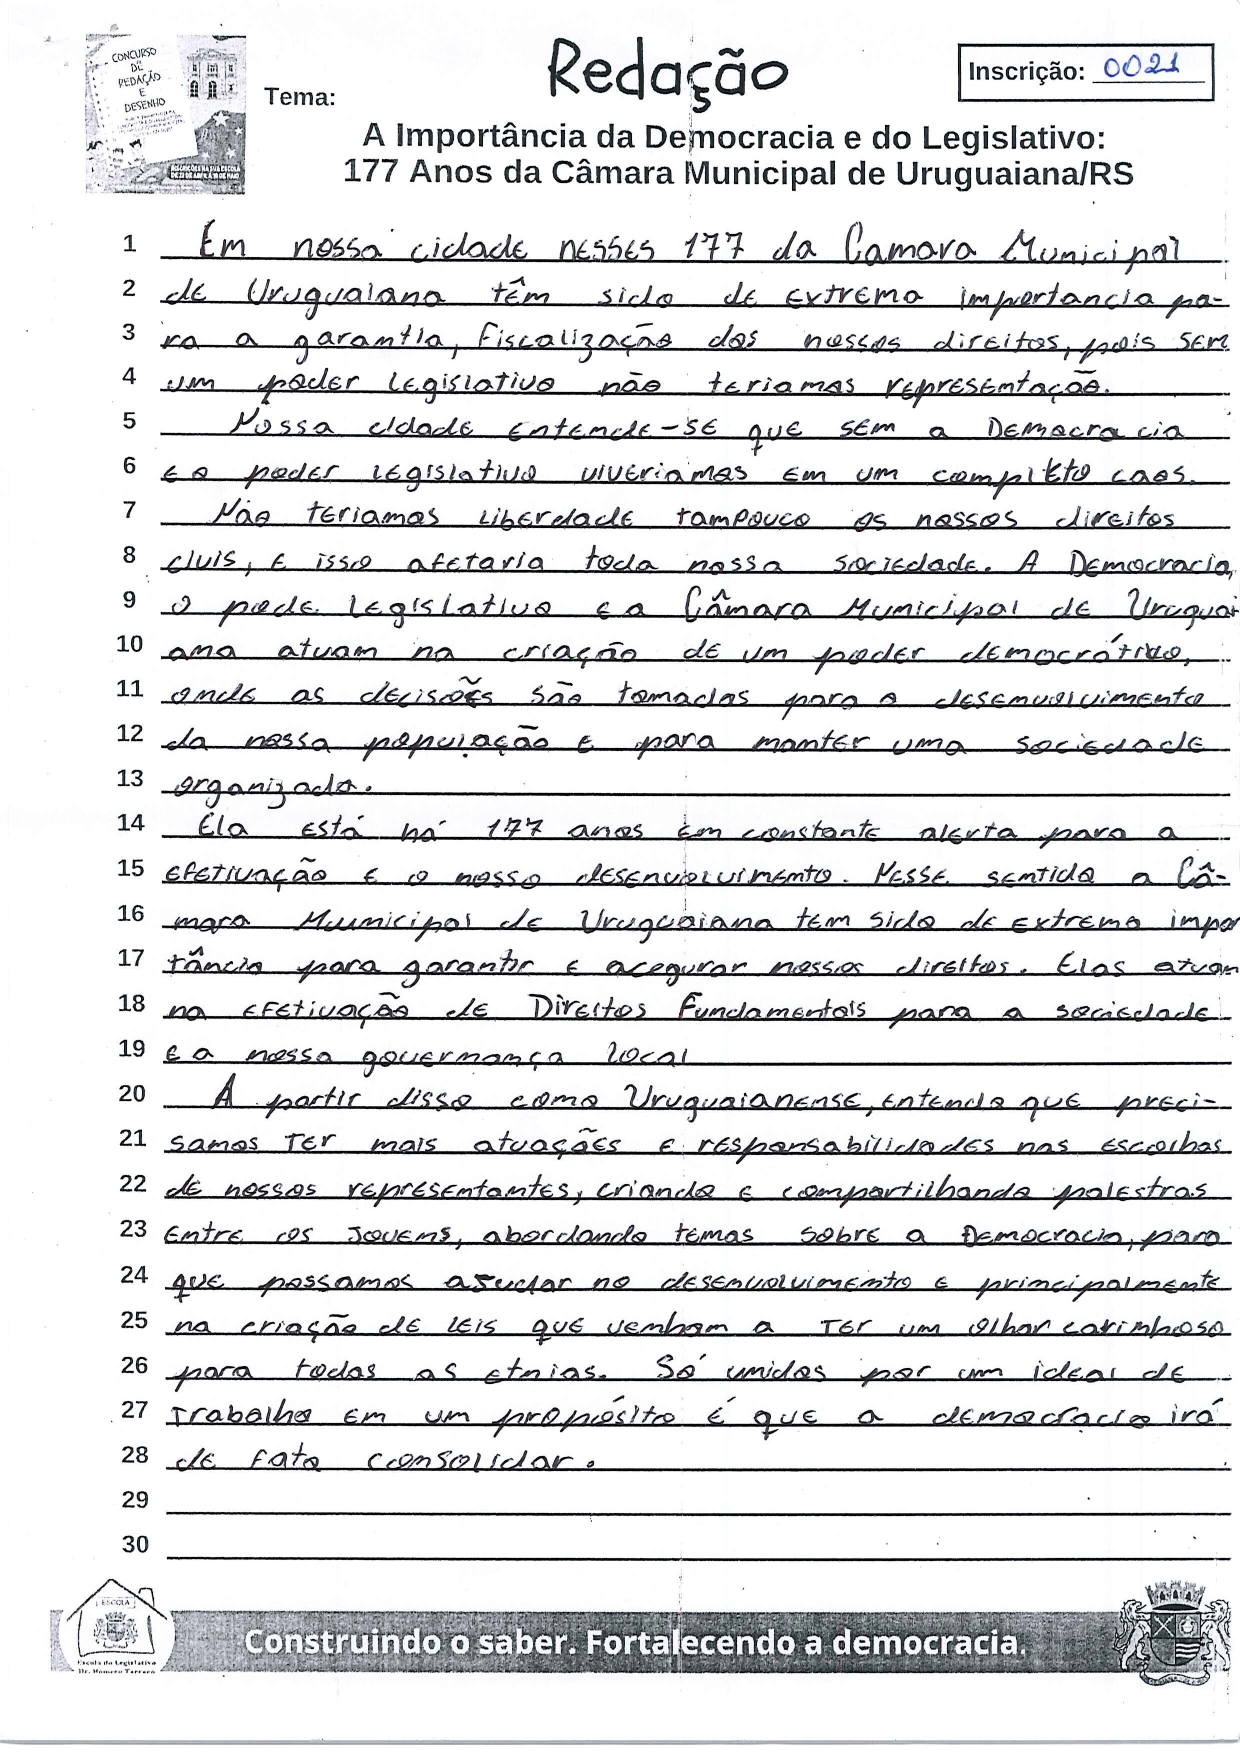 CONCURSO
DE
REDAÇÃO
E
DESENHO
Redação
Inscrição: 0021
Tema:
A Importância da Democracia e do Legislativo:
177 Anos da Câmara Municipal de Uruguaiana/RS
1 Em nossa cidade nesses 177 da Camara Municipal
2 de Uruguaiana têm sido de extrema importancia pa-
3 ra a garantia, fiscalização dos nossos direitos, pois sem
4 um poder legislativo não teriamos representação.
5 Nossa cidade entende-se que sem a Democracia
6 e o poder legislativo viveriamos em um completo caos.
7 Não teriamos liberdade tampouco os nossos direitos
8 civis, e isso afetaria toda nossa sociedade. A Democracia,
9 o pode legislativo e a Câmara Municipal de Uruguai
10 ana atuam na criação de um poder democrático,
11 onde as decisões são tomadas para o desenvolvimento
12 da nossa população e para manter uma sociedade
13 organizada.
14 Ela está há 177 anos em constante alerta para a
15 efetivação e o nosso desenvolvimento. Nesse sentido a Câ-
16 mara Municipal de Uruguaiana tem sido de extrema impor
17 tância para garantir e acegurar nossos direitos. Elas atuam
18 na efetivação de Direitos Fundamentais para a sociedade
19 e a nossa governança local
20 A partir disso como Uruguaianense, entendo que preci-
21 samos ter mais atuações e responsabilidades nas escolhas
22 de nossos representantes, criando e compartilhando palestras
23 entre os jovens, abordando temas sobre a Democracia, para
24 que possamos ajudar no desenvolvimento e principalmente
25 na criação de leis que venham a ter um olhar carinhoso
26 para todas as etnias. Só unidos por um ideal de
27 trabalho em um propósito é que a democracia irá
28 de fato consolidar.
29
30
ESCOLA
Escola do Legislativo
Construindo o saber. Fortalecendo a democracia.